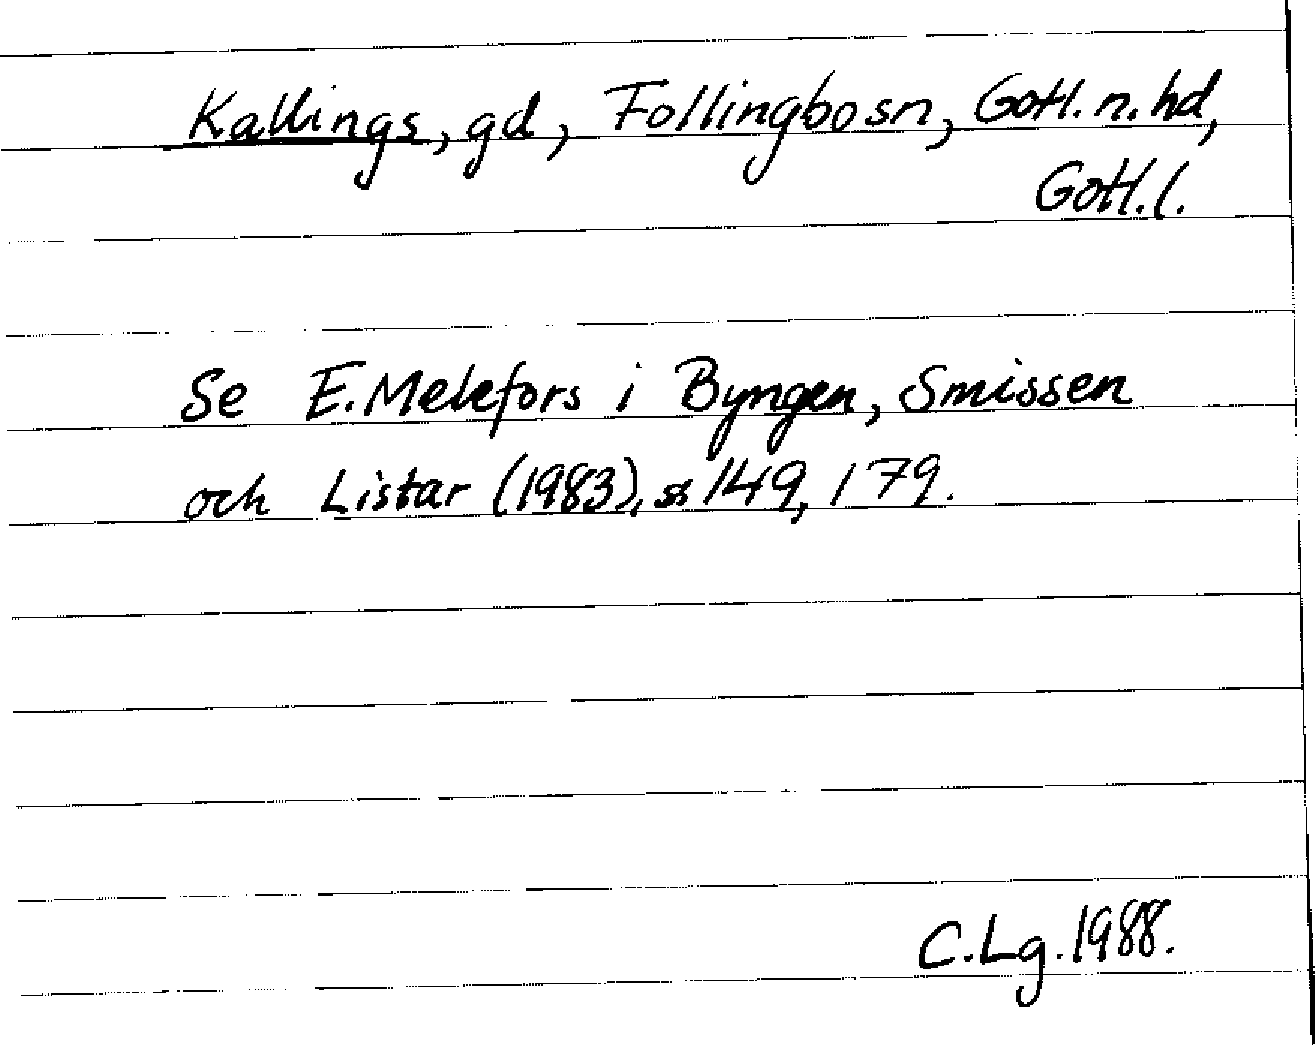 Kallings, gd, Follingbo sn, Gotl. n. hd,
Gotl. l.
Se E. Melefors i Byngen, Smissen
och Listar (1983), ss 149, 179.
C. Lg. 1988.